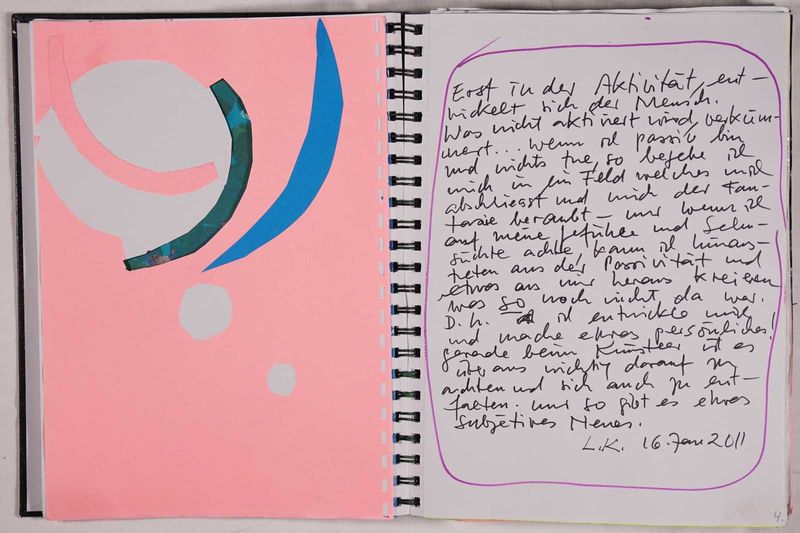 Erst in der Aktivität ent-
wickelt sich der Mensch.
Was nicht aktiviert wird, verküm-
mert... wenn ich passiv bin
und nichts tue, so begebe ich
mich in ein Feld welches mich
abschliesst und mich der Fan-
tasie beraubt – nur wenn ich
auf meine Gefühle und Sehn-
süchte achte kann ich hinaus-
treten aus der Passivität und
etwas aus mir heraus kreieren
was so noch nicht da war.
D.h. ich entwickle mich
und mache etwas persönliches!
gerade beim Künstler ist es
überaus wichtig darauf zu
achten und sich auch zu ent-
falten. nur so gibt es etwas
subjektives Neues.
L.K. 16. Jan 2011
4.